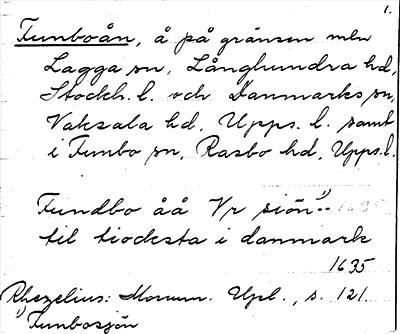 1.
Funboån, å på gränsen mln
Lagga sn, Långhundra hd,
Stockh. l. och Danmarks sn,
Vaksala hd, Upps. l. samt
i Funbo sn, Rasbo hd, Upps. l.
Fundbo åå Vr siön 1)..
til tiodesta i danmark
1635
Rhezelius: Monum. Upl., s. 121.
1) Funbosjön